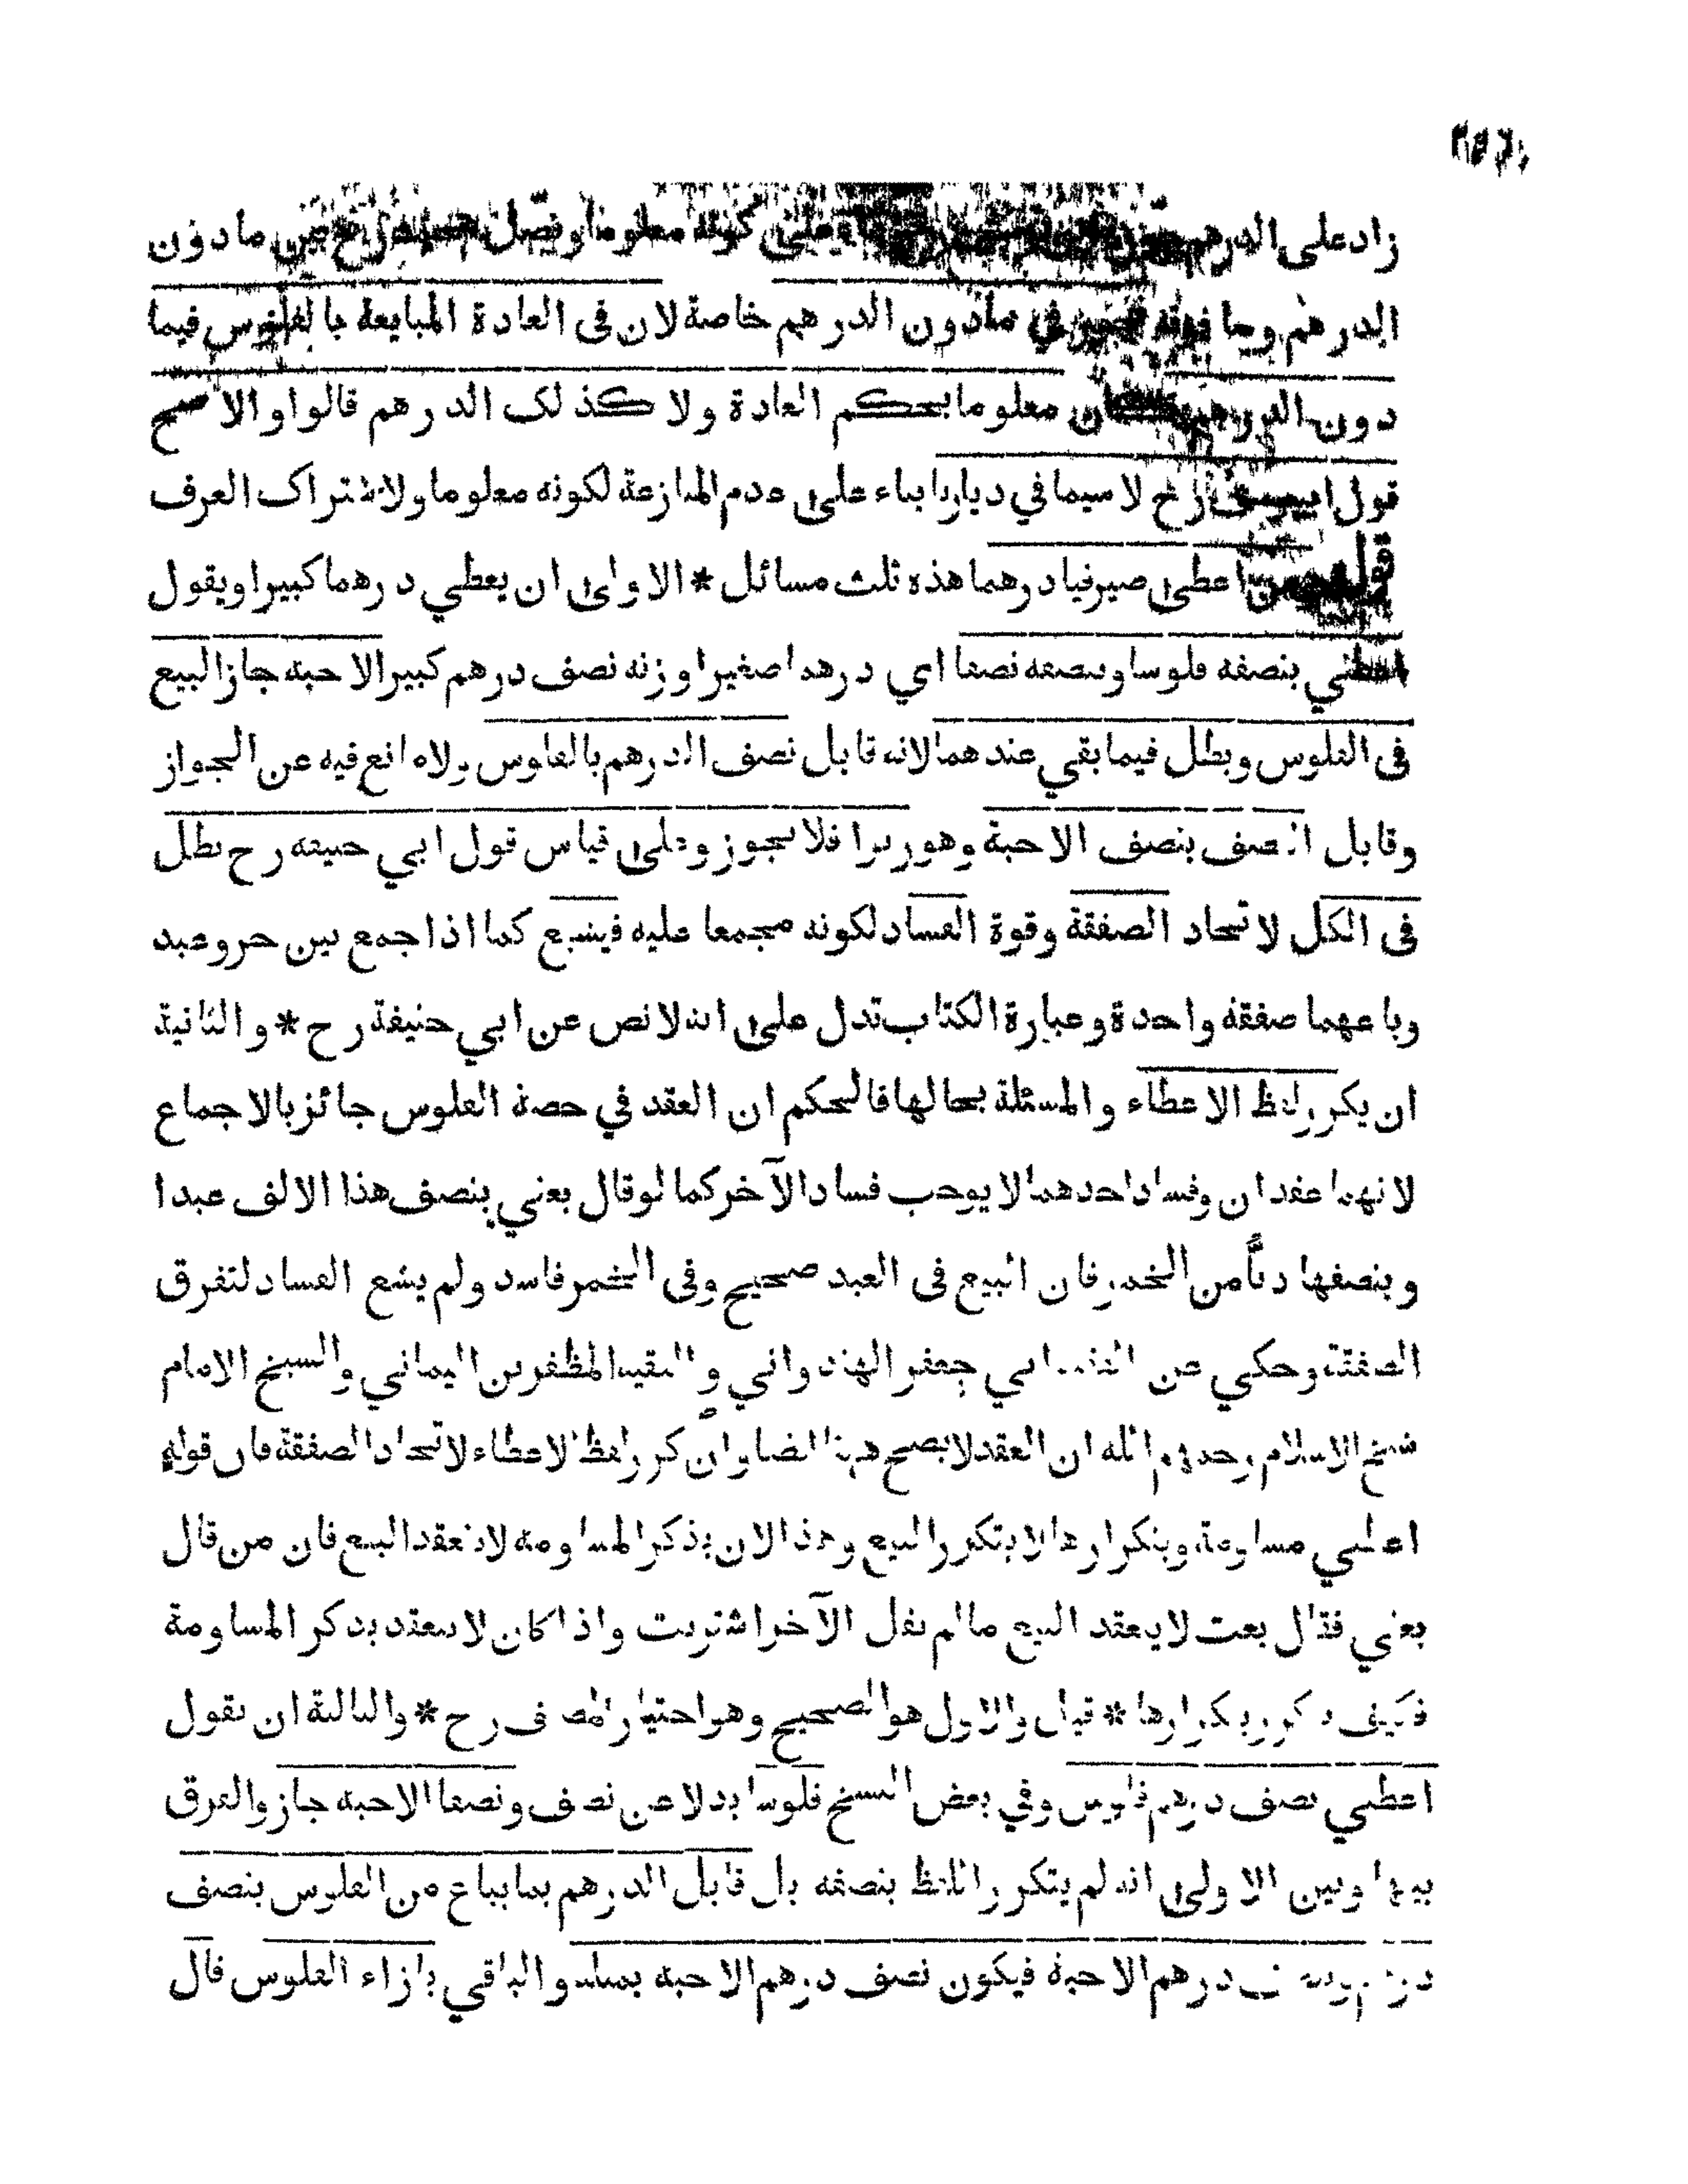 زاد على الدرهم على كونه معلوما وفصل محمد رح بين ما دون
الدرهم وما فوقه فى ما دون الدرهم خاصة لان فى العادة المبايعة بالفلوس فيما
دون الدرهم فكان معلوما بحكم العادة ولا كذلك الدرهم قالوا والاصح
قول ابي يوسف رح لا سيما في ديارنا بناء على عدم المنازعة لكونه معلوما ولاشتراك العرف
قوله ومن اعطى صيرفيا درهما هذه ثلث مسائل * الاولى ان يعطي درهما كبيرا ويقول
اعطني بنصفه فلوسا وبنصفه نصفا اي درهما صغيرا وزنه نصف درهم كبير الا حبة جاز البيع
فى الفلوس وبطل فيما بقي عندهما لانه قابل نصف الدرهم بالفلوس ولا مانع فيه عن الجواز
وقابل النصف بنصف الا حبة وهو ربوا فلا يجوز وعلى قياس قول ابي حنيفة رح بطل
فى الكل لاتحاد الصفقة وقوة الفساد لكونه مجمعا عليه فيشيع كما اذا جمع بين حر وعبد
وباعهما صفقة واحدة وعبارة الكتاب تدل على انه لا نص عن ابي حنيفة رح * والثانية
ان يكرر لفظ الاعطاء والمسئلة بحالها فالحكم ان العقد في حصة الفلوس جائز بالاجماع
لانهما عقدان وفساد احدهما لا يوجب فساد الآخر كما لو قال بعني بنصف هذا الالف عبدا
وبنصفها دنًّا من الخمر فان البيع فى العبد صحيح وفى الخمر فاسد ولم يشع الفساد لتفرق
الصفقة وحكي عن الفقيه ابي جعفر الهندواني والفقيه المظفر بن اليماني والشيخ الامام
شيخ الاسلام رحمهم الله ان العقد لا يصح هنا ايضا وان كرر لفظ الاعطاء لاتحاد الصفقة فان قوله
اعطني مساومة وبتكرارها لا يتكرر البيع وهذا لان بذكر المساومة لا ينعقد البيع فان من قال
بعني فقال بعت لا ينعقد البيع ما لم يقل الآخر اشتريت واذا كان لا ينعقد بذكر المساومة
فكيف يتكرر بتكرارها * قيل والاول هو الصحيح وهو اختيار المصنف رح * والثالثة ان يقول
اعطني نصف درهم فلوس وفي بعض النسخ فلوسا بدلا عن نصف ونصفا الا حبة جاز والفرق
بينها وبين الاولى انه لم يتكرر اللفظ بنصفه بل قابل الدرهم بما يباع من الفلوس بنصف
درهم وبنصف درهم الا حبة فيكون نصف درهم الا حبة بمثله والباقي بازاء الفلوس قال